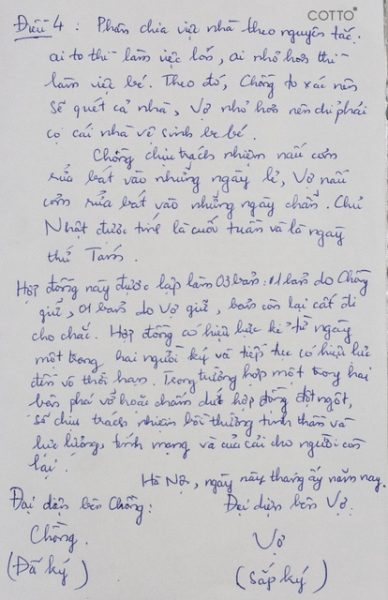 COTTO
Điều 4 : Phân chia việc nhà theo nguyên tắc.
ai to thì làm việc lớn, ai nhỏ hơn thì
làm việc bé. Theo đó, Chồng to xác nên
sẽ quét cả nhà, Vợ nhỏ hơn nên chỉ phải
cọ cái nhà vệ sinh be bé.
Chồng chịu trách nhiệm nấu cơm
rửa bát vào những ngày lẻ, Vợ nấu
cơm rửa bát vào những ngày chẵn. Chủ
Nhật được tính là cuối tuần và là ngày
thứ Tám.
Hợp đồng này được lập làm 03 bản: 01 bản do Chồng
giữ, 01 bản do Vợ giữ, bản còn lại cất đi
cho chắc. Hợp đồng có hiệu lực kể từ ngày
một trong hai người ký và tiếp tục có hiệu lực
đến vô thời hạn. Trong trường hợp một trong hai
bên phá vỡ hoặc chấm dứt hợp đồng đột ngột,
sẽ chịu trách nhiệm bồi thường tinh thần và
lực lượng, tính mạng và của cải cho người còn
lại.
Hà Nội, ngày này tháng ấy năm nay.
Đại diện bên Chồng: Đại diện bên Vợ:
Chồng. Vợ
(Đã ký) (Sắp ký)